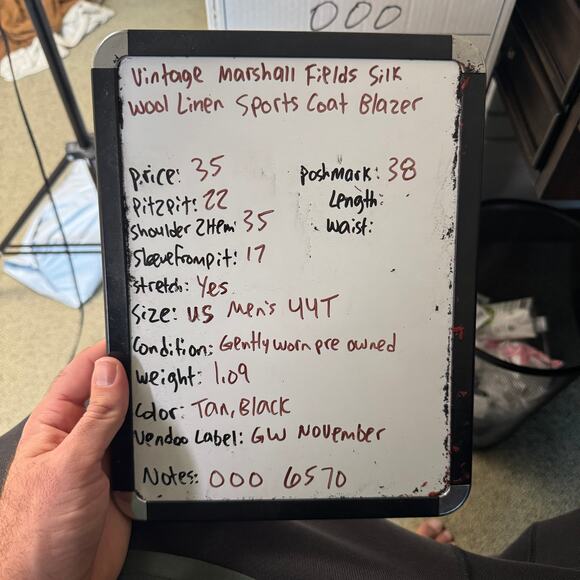 000
Vintage Marshall Fields Silk
Wool Linen Sports Coat Blazer
price: 35
poshmark: 38
Pit2pit: 22
Length:
Shoulder 2Hem: 35
Waist:
Sleevefrompit: 17
Stretch: Yes
Size: US Men's 44T
Condition: Gently worn pre owned
Weight: 1.09
Color: Tan, Black
Vendoo Label: GW November
Notes: 000 6570